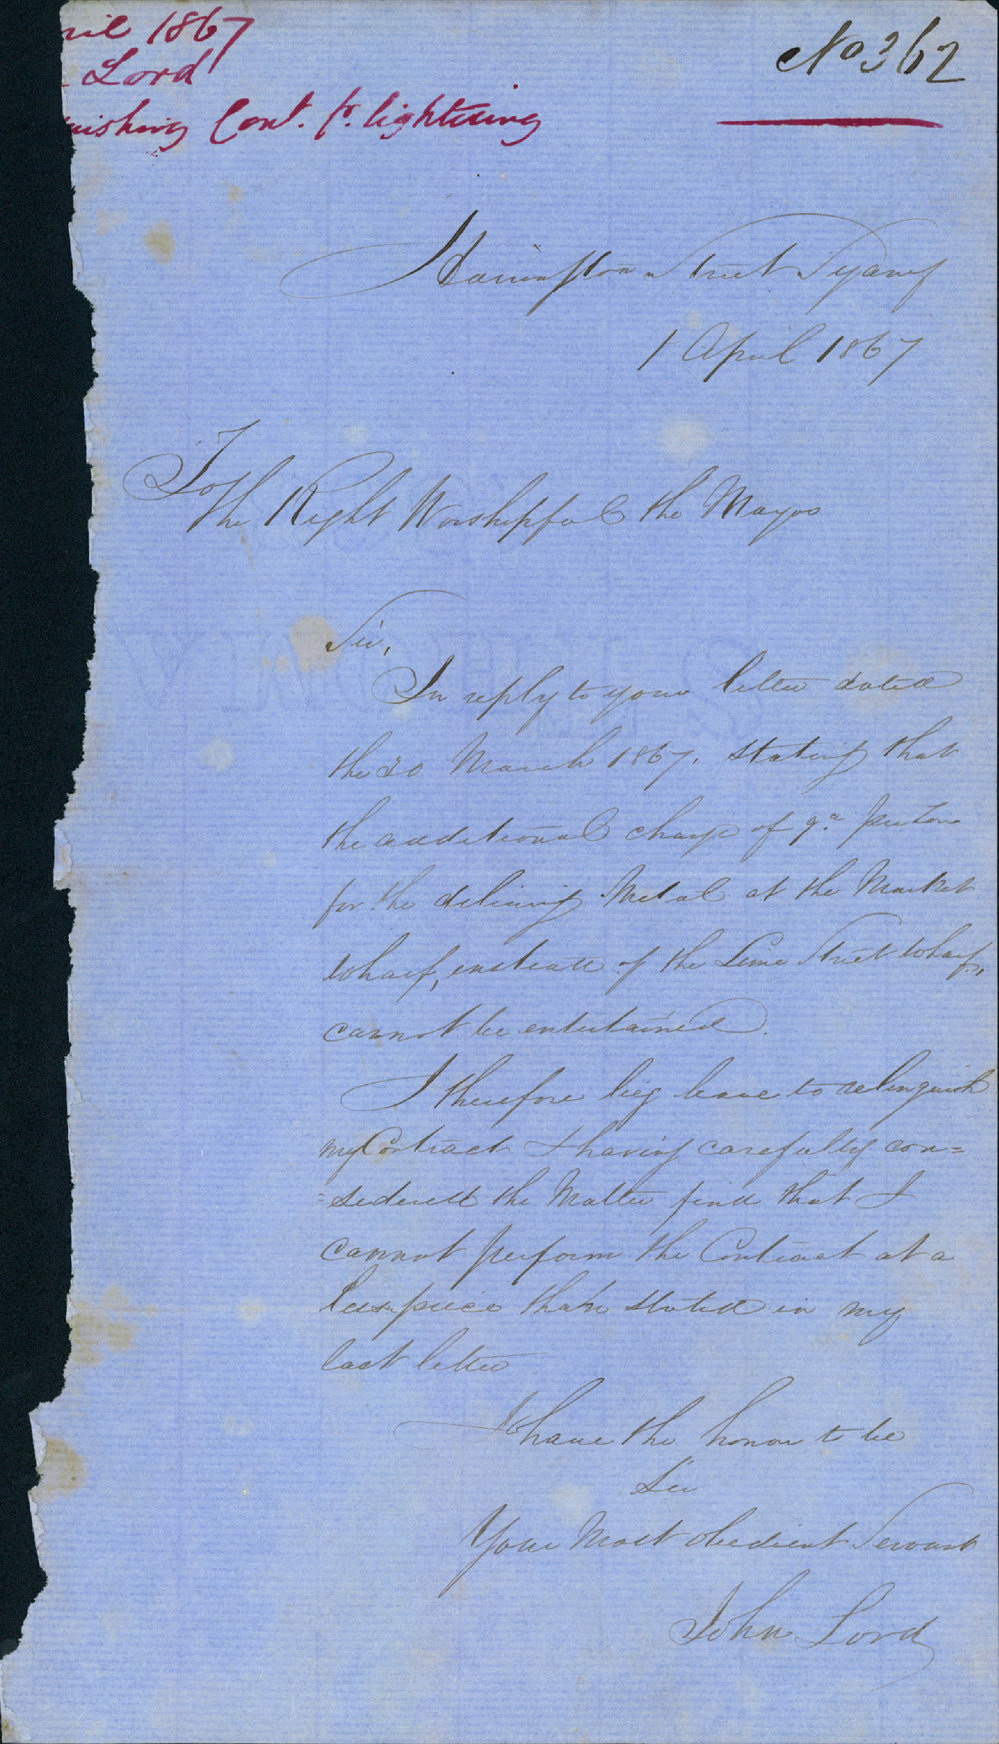 ril 1867
Lord
uishing Cont. fr. lightering
No 362
Harrington Street Sydney
1 April 1867
To
The Right Worshipful the Mayor
Sir,
In reply to your letter dated
the 20 March 1867, stating that
the additional charge of 9d per Ton
for the delivering Metal at the Market
Wharf, instead of the Lime Street Wharf,
cannot be entertained.
I therefore beg leave to relinquish
my Contract & having carefully con=
=sidered the Matter find that I
cannot perform the Contract at a
less price than stated in my
last letter
I have the honor to be
Sir
Your Most obedient Servant
John Lord